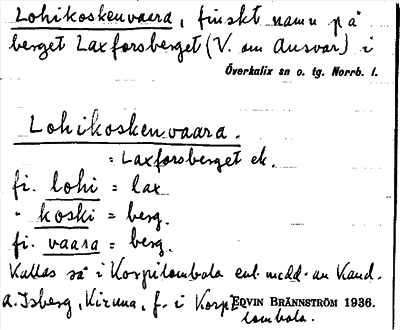 Lohikoskenvaara, finskt namn på
berget Laxforsberget (V. om Ansvar) i
Överkalix sn o. tg. Norrb. l.
Lohikoskenvaara.
= Laxforsberget ek.
fi. lohi = lax
" koski = berg.
fi. vaara = berg.
Kallas så i Korpilombolo enl. medd. av Kand.
A. Isberg, Kiruna, f. i Korpi-
lombolo.
ERVIN BRÄNNSTRÖM 1936.